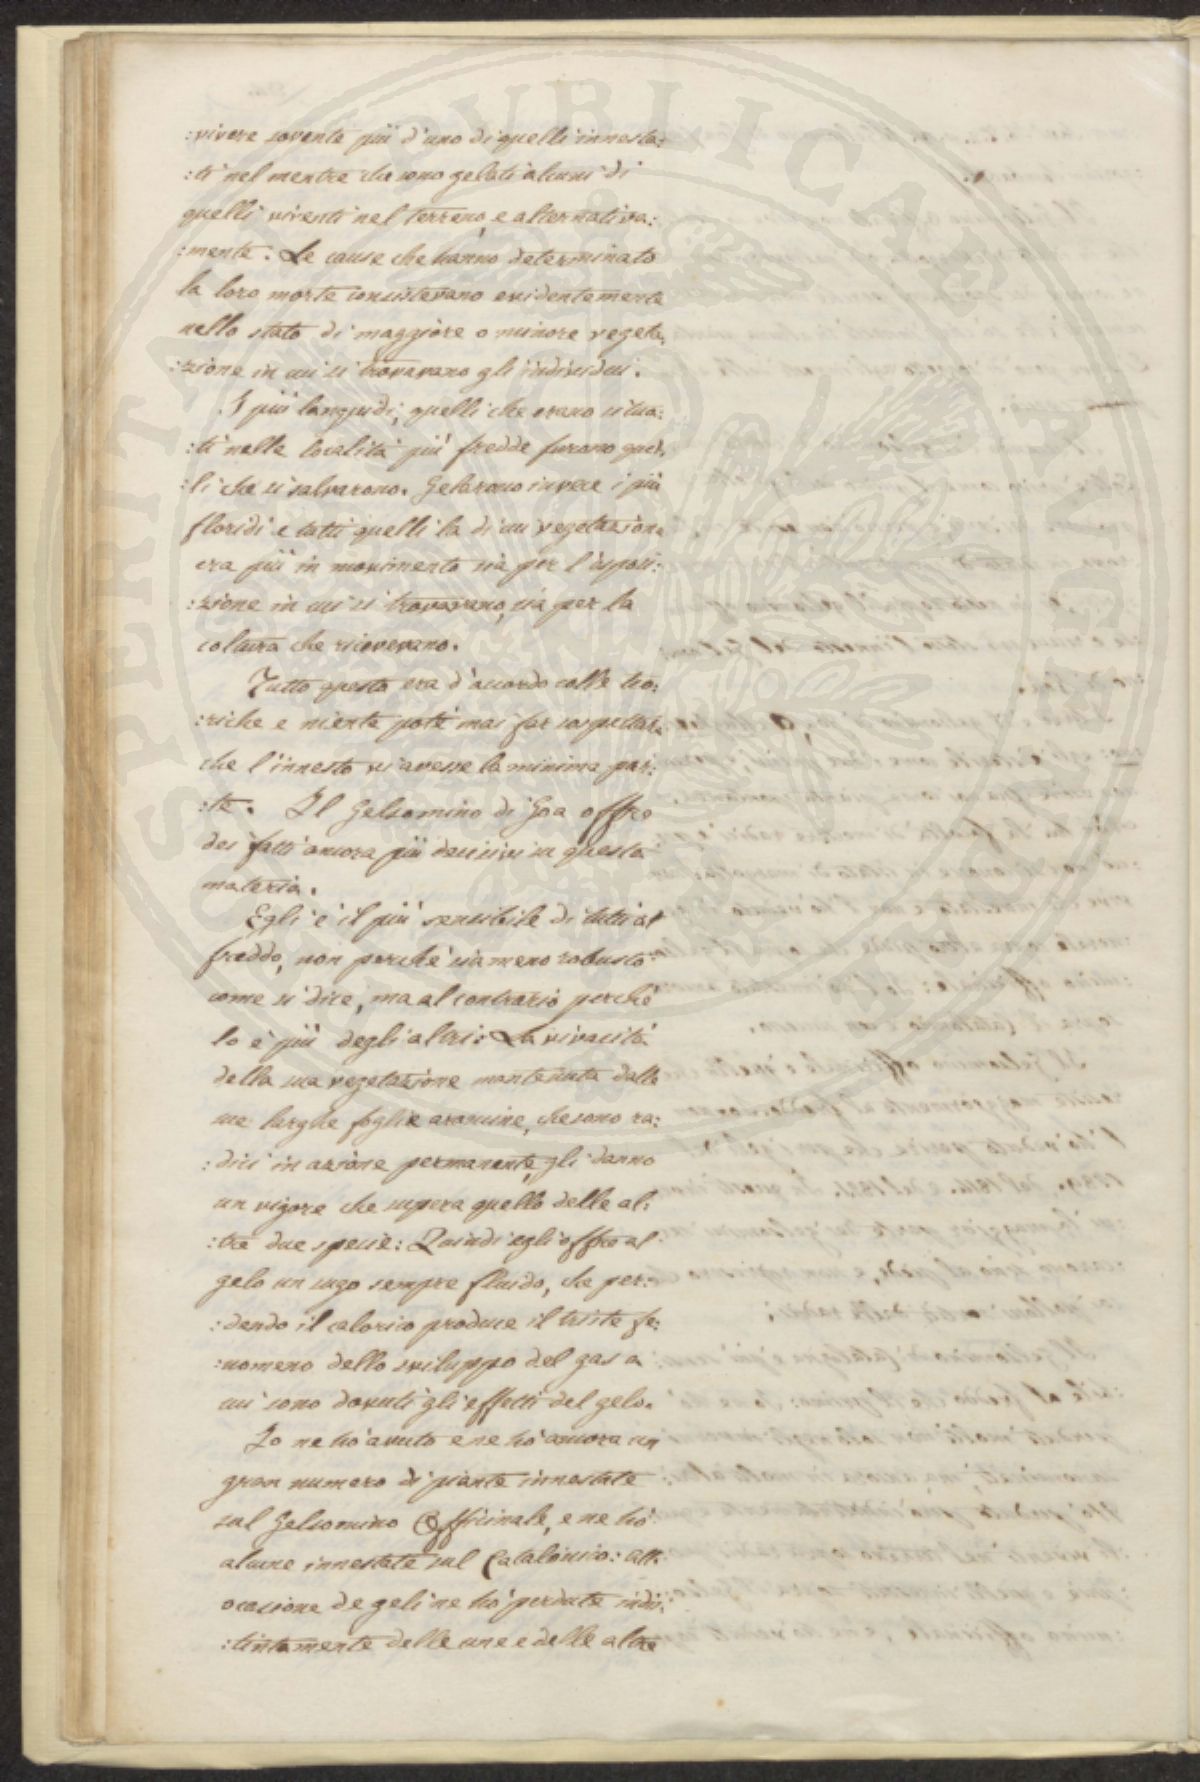 :vivere sovente più d'uno di quelli innesta:
:ti nel mentre che sono gelati alcuni di
quelli viventi nel terreno, e alternativa:
:mente. Le cause che hanno determinato
la loro morte consistevano evidentemente
nello stato di maggiore o minore vegeta:
:zione in cui si trovavano gli individui.
I più languidi, quelli che erano situa:
:ti nelle località più fredde furono quel:
:li che si salvarono. Gelarono invece i più
floridi e tutti quelli la di cui vegetazione
era più in movimento sia per l'esposi:
:zione in cui si trovavano, sia per la
coltura che ricevevano.
Tutto questo era d'accordo colle teo:
:riche e niente poté mai far sospettar,
che l'innesto vi avesse la minima par:
:te. Il Gelsomino di Goa offre
dei fatti ancora più decisivi in questa
materia.
Egli è il più sensibile di tutti al
freddo, non perchè sia meno robusto
come si dice, ma al contrario perchè
lo è più degli altri. La vivacità
della sua vegetazione mantenuta dalle
sue larghe foglie
:dici in azione permanente, gli danno
un vigore che supera quello delle al:
:tre due specie: Quindi egli offre al
gelo un sugo sempre fluido, che per:
:dendo il calorico produce il triste fe:
:nomeno dello sviluppo del gas a
cui sono dovuti gli effetti del gelo.
Io ne hò avuto e ne hò ancora un
gran numero di piante innestate
sul Gelsomino Officinale, e ne hò
alcune innestate sul Catalonico: all'
occasione de geli ne hò perdute indis:
:tintamente delle une e delle altre
SPERITAS PVBLICAE AVGENDAE